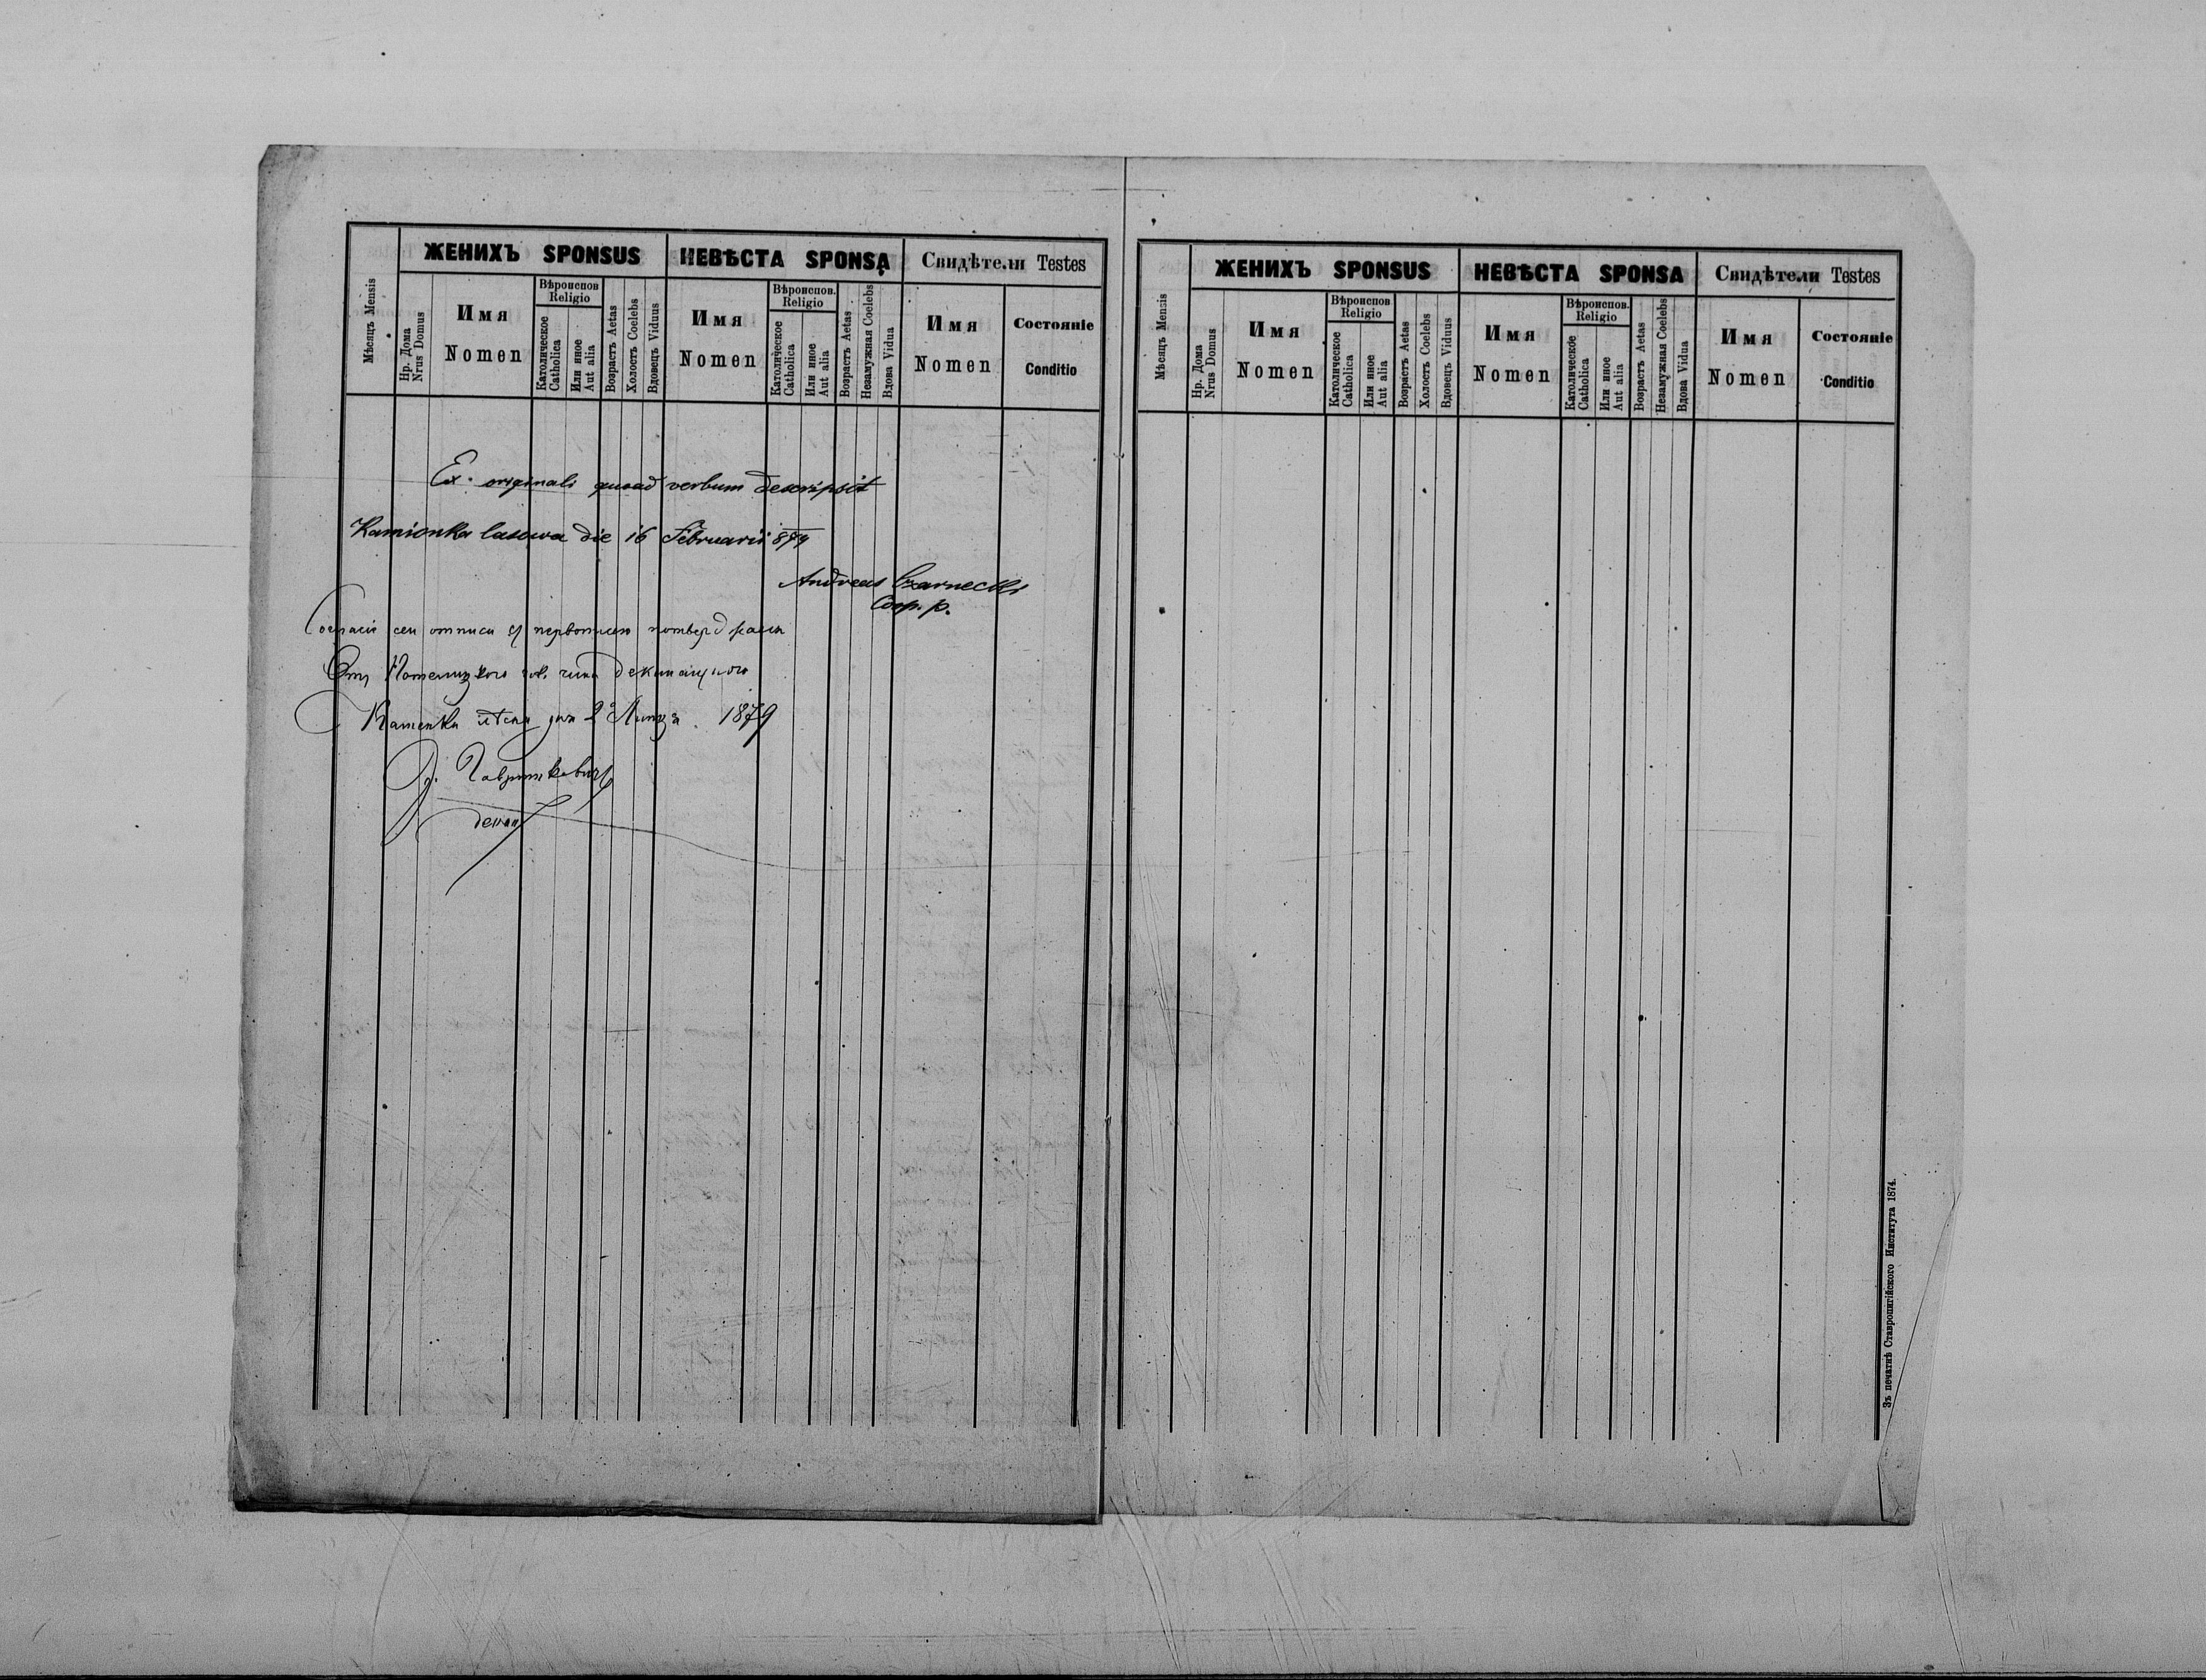 ЖЕНИХЪ SPONSUS НЕВѢСТА SPONSA Свидѣтели Testes
Мѣсяцъ Mensis
Нр. Дома
Nrus Domus
Имя
Nomen
Вѣроиспов
Religio
Католическое
Catholica
Или иное
Aut alia
Возрастъ Aetas
Холостъ Coelebs
Вдовецъ Viduus
Имя
Nomen
Вѣроиспов.
Religio
Католическое
Catholica
Или иное
Aut alia
Возрастъ Aetas
Незамужная Coelebs
Вдова Vidua
Имя
Nomen
Состоянiе
Conditio
Ex originali quoad verbum descripsit
Kamionka lasowa die 16 Februarii 879
Andreas Czarnecki
Coop. p.
сеи отписи
деканального
Каменка дня 2 1879
декан
ЖЕНИХЪ SPONSUS НЕВѢСТА SPONSA Свидѣтели Testes
Мѣсяцъ Mensis
Нр. Дома
Nrus Domus
Имя
Nomen
Вѣроиспов
Religio
Католическое
Catholica
Или иное
Aut alia
Возрастъ Aetas
Холостъ Coelebs
Вдовецъ Viduus
Имя
Nomen
Вѣроиспов.
Religio
Католическое
Catholica
Или иное
Aut alia
Возрастъ Aetas
Незамужная Coelebs
Вдова Vidua
Имя
Nomen
Состоянiе
Conditio
Зъ печатнѣ Ставропигiйского Института 1874.